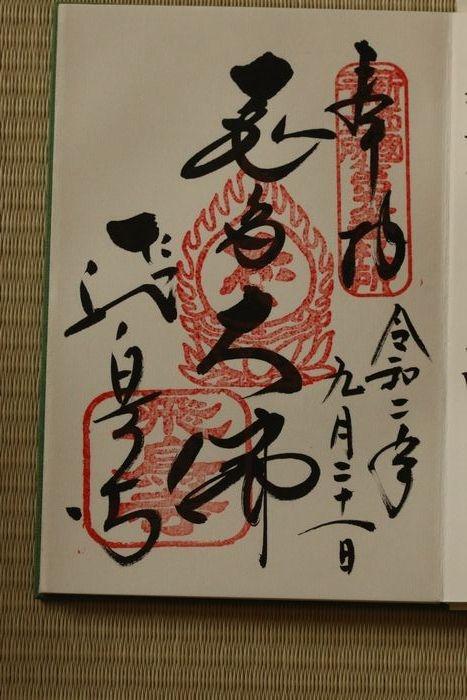 奉拝
令和二年
九月二十一日
飛鳥大佛
飛鳥寺